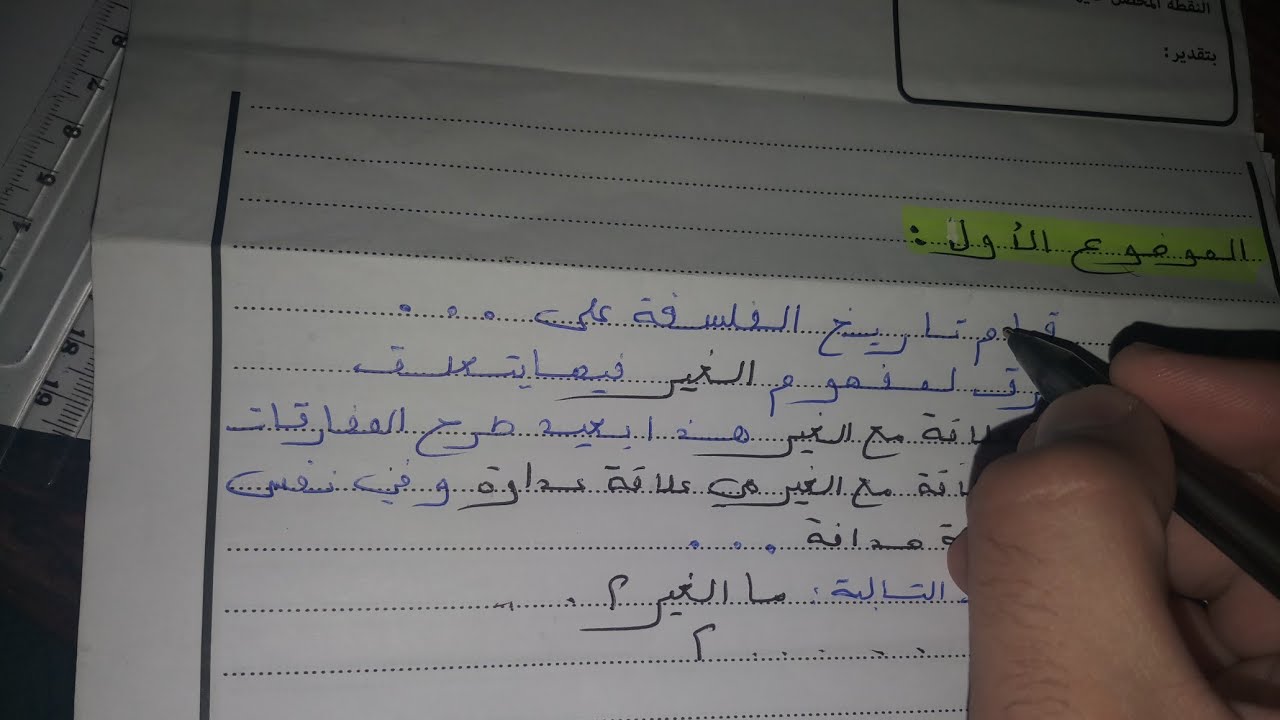 النقطة المحصل
بتقدير:
الموضوع الأول:
قام تاريخ الفلسفة على ...
لمفهوم الغير فيما يتعلق
مع الغير هذا بعيد طرح المفارقات
مع الغير هي علاقة عداوة و في نفس
صدافة ...
التالية: ما الغير ؟
؟